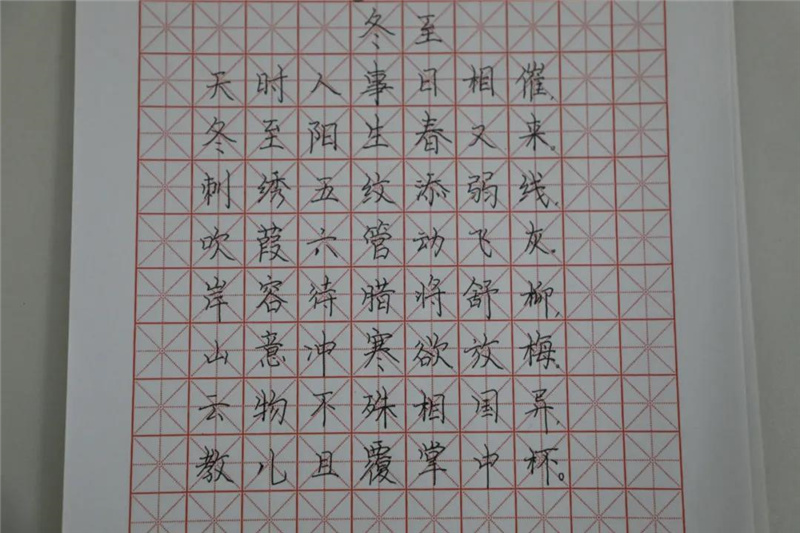 冬至
天时人事日相催,
冬至阳生春又来。
刺绣五纹添弱线,
吹葭六管动飞灰。
岸容待腊将舒柳,
山意冲寒欲放梅。
云物不殊相国异,
教儿且覆掌中杯。